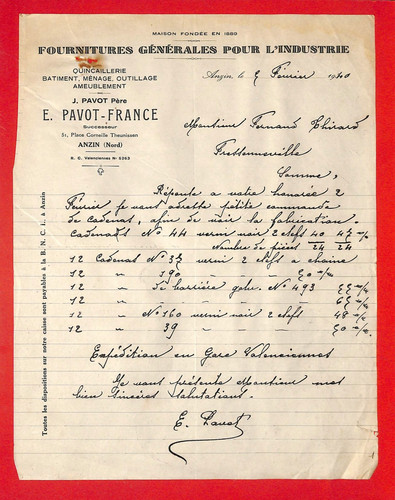 MAISON FONDÉE EN 1889
FOURNITURES GÉNÉRALES POUR L'INDUSTRIE
QUINCAILLERIE
BATIMENT, MÉNAGE, OUTILLAGE
AMEUBLEMENT
J. PAVOT Père
E. PAVOT-FRANCE
Successeur
51, Place Corneille Theunissen
ANZIN (Nord)
R. C. Valenciennes Nº 5263
Anzin, le Février 1940
Monsieur Fernand
Somme,
Réponse a votre honorée 2
Février je vous petite commande
de cadenas, afin de voir la fabrication.
Cadenas Nº 44 verni noir 2 clefs 40 47 m/m
Nombre de pièces 24 24
12 Cadenas Nº 37 verni 2 clefs a chaine
12 " 190 " 50 m/m
12 " de barrière Nº 493 55 m/m
12 " " 65 m/m
12 " Nº 160 verni noir 2 clefs 48 m/m
12 " 39 " 50 m/m
Expédition en Gare Valenciennes
Je vous présente Monsieur mes
bien sincères salutations.
E. Pavot
Toutes les dispositions sur notre caisse sont payables à la B. N. C. I. à Anzin